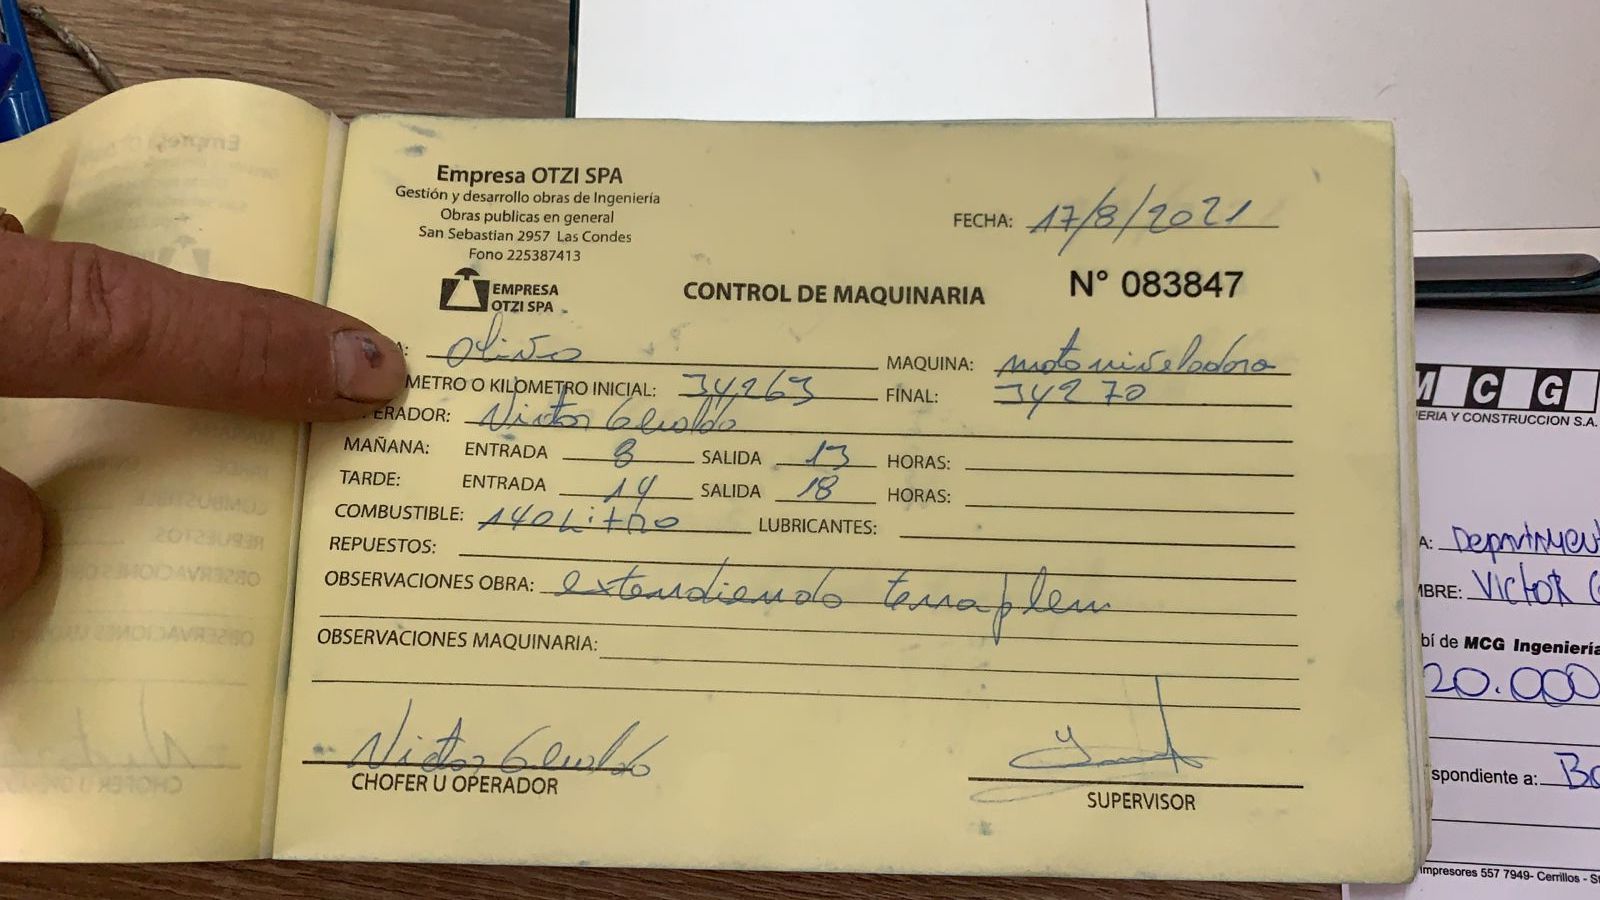 Empresa OTZI SPA
Gestión y desarrollo obras de Ingeniería
Obras publicas en general
San Sebastian 2957 Las Condes
Fono 225387413
EMPRESA
OTZI SPA
FECHA: 17/8/2021
CONTROL DE MAQUINARIA
N° 083847
A: MAQUINA: motoniveladora
METRO O KILOMETRO INICIAL: 34,263 FINAL: 34270
ERADOR: Victor
MAÑANA: ENTRADA 8 SALIDA 13 HORAS:
TARDE: ENTRADA 14 SALIDA 18 HORAS:
COMBUSTIBLE: 140 Litro LUBRICANTES:
REPUESTOS:
OBSERVACIONES OBRA: extendiendo terraplen
OBSERVACIONES MAQUINARIA:
Victor
CHOFER U OPERADOR
SUPERVISOR
MCG
ERIA Y CONSTRUCCION S.A.
A:
MBRE: VICTOR G
bí de MCG Ingeniería
20.000
spondiente a: Bo
Impresores 557 7949- Cerrillos - S